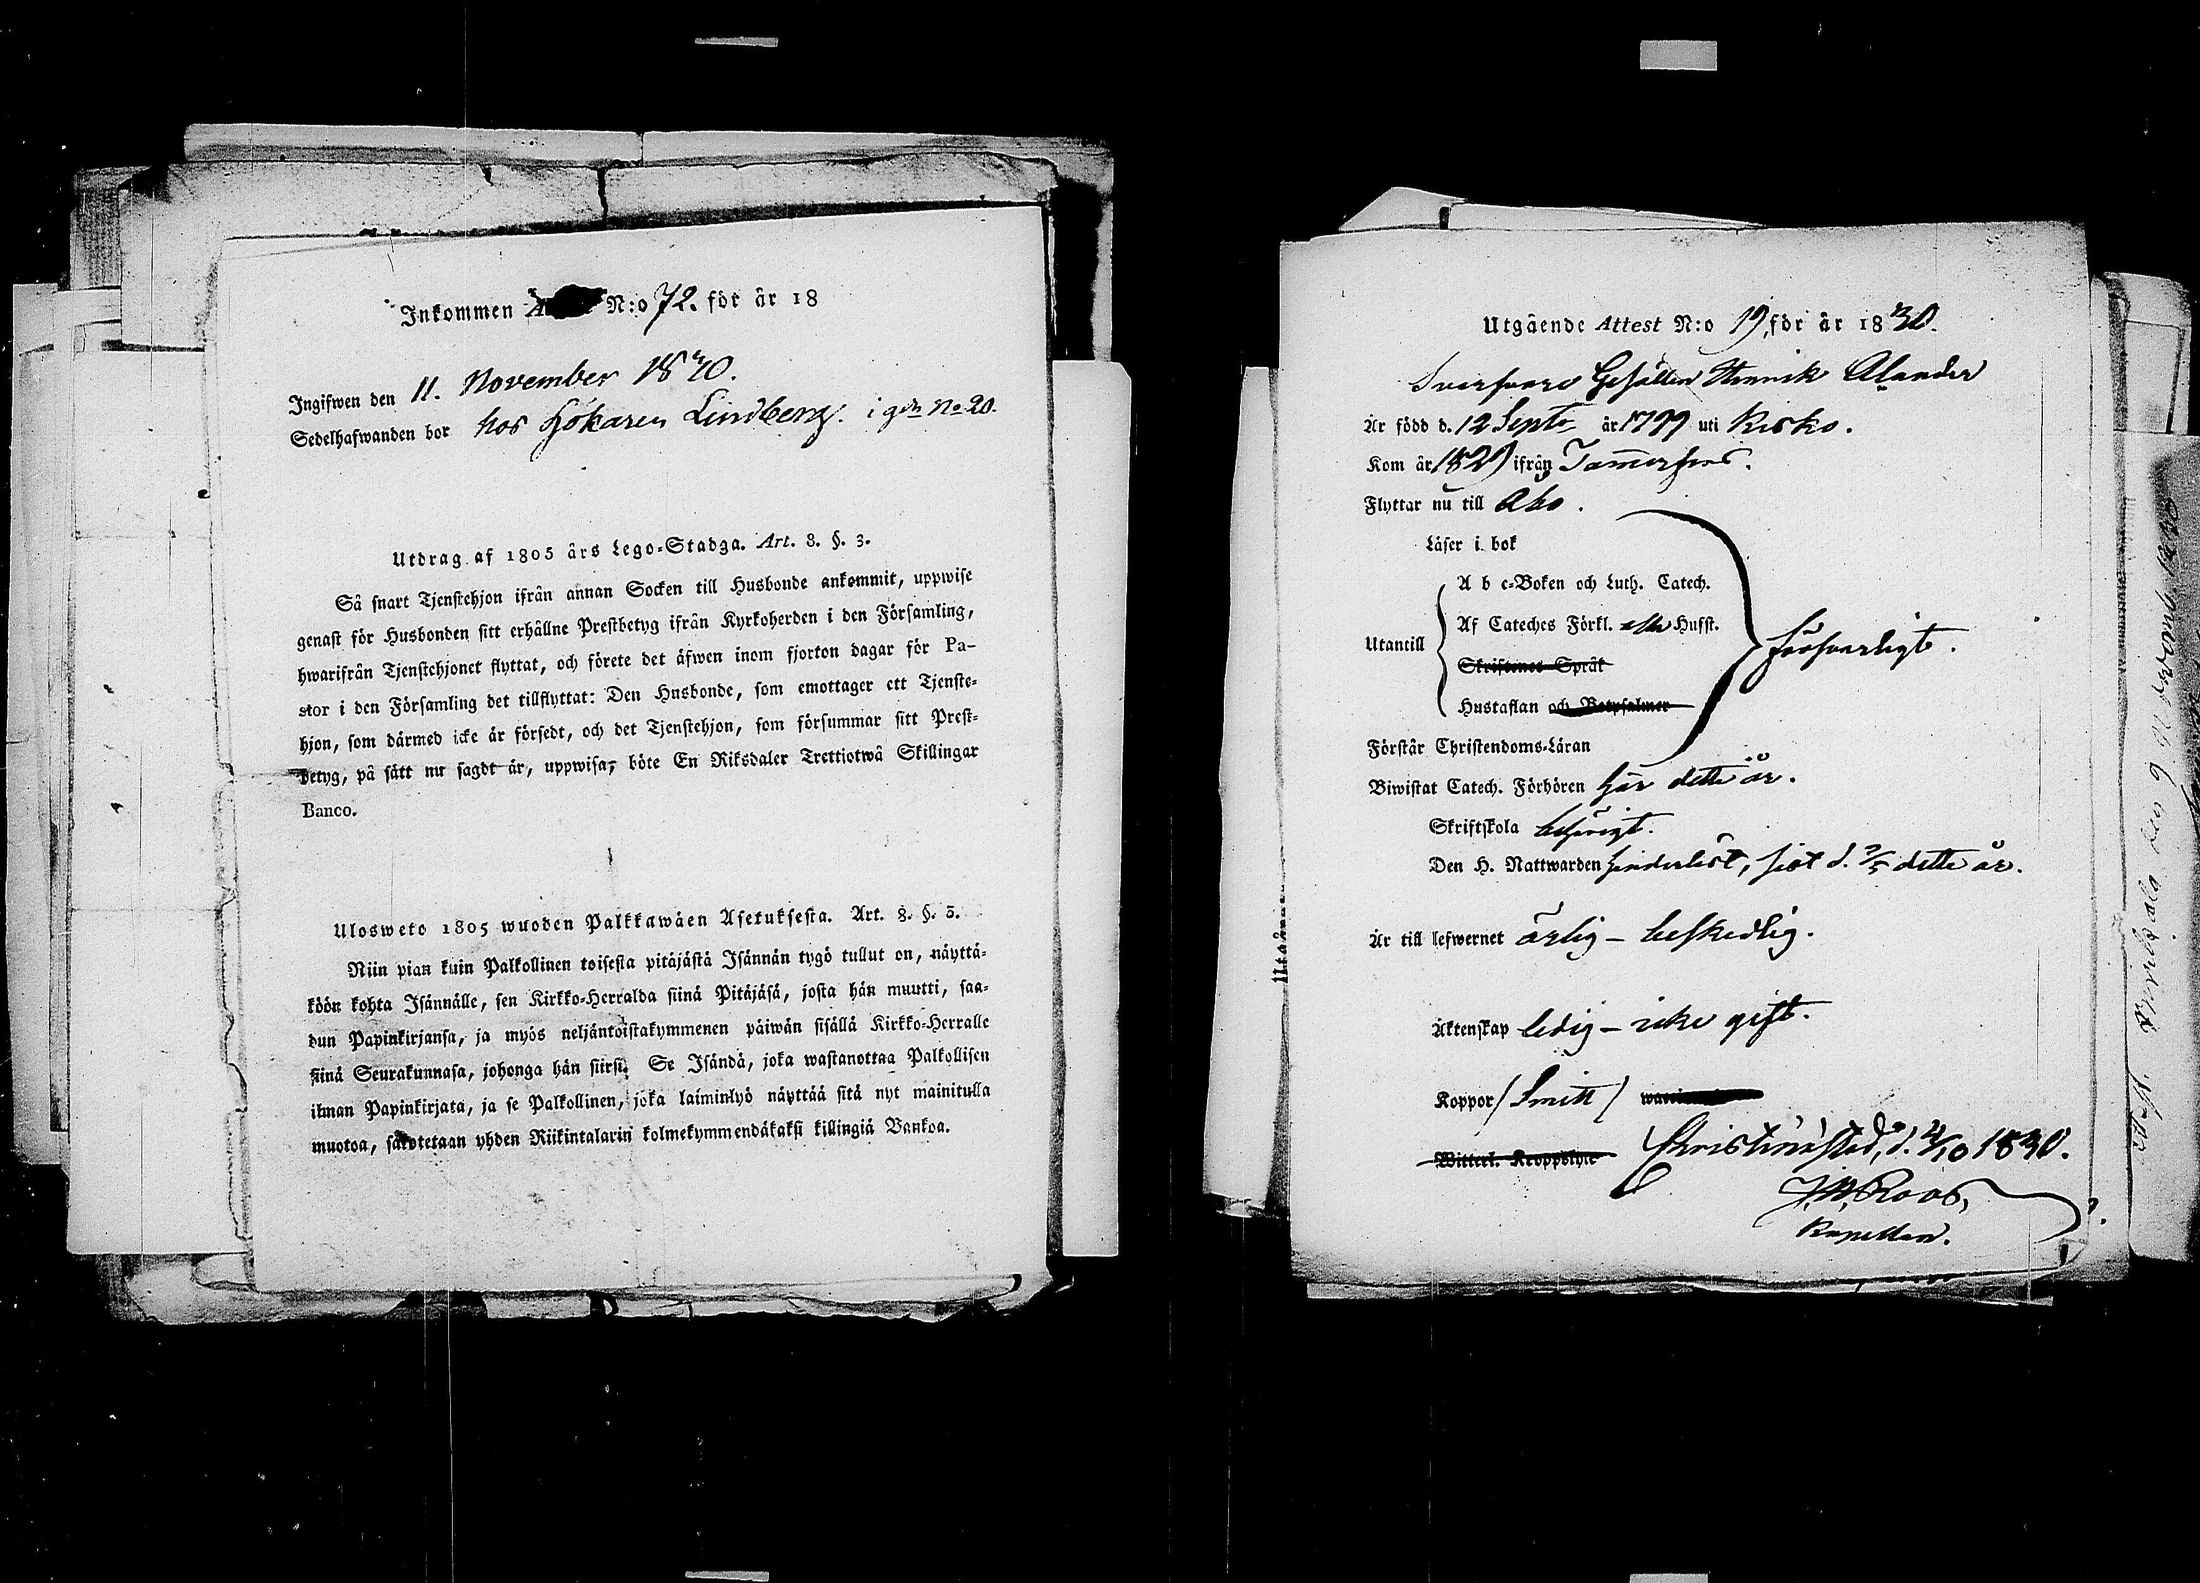 Inkommen N:o 72. för år 18
Ingifwen den 11. November 1830.
Sedelhafwanden bor hos Hökaren Lindberg. i gdn No 20.
Utdrag af 1805 års Lego-Stadga. Art. 8. §. 3.
Så snart Tjenstehjon ifrån annan Socken till Husbonde ankommit, uppwise
genast för Husbonden sitt erhållne Prestbetyg ifrån Kyrkoherden i den Församling,
hwarifrån Tjenstehjonet flyttat, och förete det äfwen inom fjorton dagar för Pa-
stor i den Församling det tillflyttat: Den Husbonde, som emottager ett Tjenste-
hjon, som därmed icke är försedt, och det Tjenstehjon, som försummar sitt Prest-
betyg, på sätt nu sagdt är, uppwisa, böte En Riksdaler Trettiotwå Skillingar
Banco.
Ulosweto 1805 wuoden Palkkawäen Asetuksesta. Art. 8. §. 3.
Niin pian kuin Palkollinen toisesta pitäjästä Isännän tygö tullut on, näyttä-
köön kohta Isännälle, sen Kirkko-Herralda siinä Pitäjäsä, josta hän muutti, saa-
dun Papinkirjansa, ja myös neljäntoistakymmenen päiwän sisällä Kirkko-Herralle
siinä Seurakunnasa, johonga hän siirsi. Se Isändä, joka wastanottaa Palkollisen
ilman Papinkirjata, ja se Palkollinen, joka laiminlyö näyttää sitä nyt mainitulla
muotoa, sakotetaan yhden Riikintalarin kolmekymmendäkaksi killingiä Bankoa.
Utgående Attest N:o 19, för år 1830.
Svarfvare Gesällen Henrik Alander
Är född d. 12 Septr år 1799 uti Kisko.
Kom år 1829 ifrån Tammerfors.
Flyttar nu till Åbo.
Läser i bok
A b c-Boken och Luth. Catech.
Utantill Af Cateches Förkl. Husst. försvarligt.
Skriftenes Språk
Hustaflan och Botpsalmer
Förstår Christendoms-Läran
Biwistat Catech. Förhören här dette år.
Skriftskola behörigt.
Den H. Nattwarden hinderlöst, sist d. 2/5 dette år.
Är till lefwernet ärlig – beskedlig.
Äktenskap ledig – icke gift.
Koppor / Smitt /
Witterl. Kroppslyte Christinæstad, d. 21/10 1830.
J. W. Roos,
Kapellan.